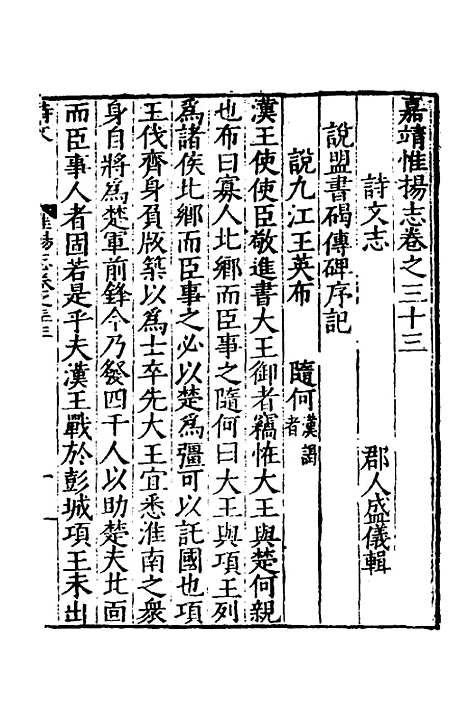 嘉靖惟揚志卷之三十三
詩文志
郡人盛儀輯
說盟書碣傳碑序記
說九江王英布 隨何漢謁者
漢王使使臣敬進書大王御者竊恠大王與楚何親
也布曰寡人北鄉而臣事之隨何曰大王與項王列
爲諸侯北鄉而臣事之必以楚爲彊可以託國也項
王伐齊身負版築以爲士卒先大王宜悉淮南之衆
身自將爲楚軍前鋒今乃發四千人以助楚夫北面
而臣事人者固若是乎夫漢王戰於彭城項王未出
詩文 惟揚志卷之三十三 一